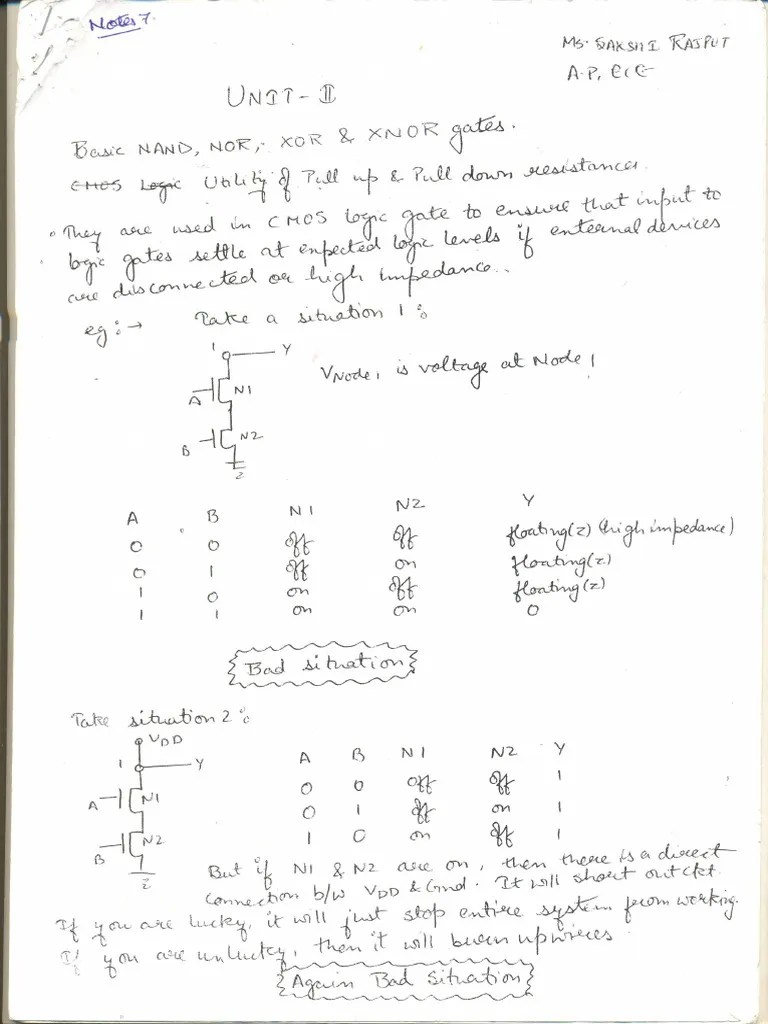 Notes 7.
Ms. SAKSHI RAJPUT
A.P, ECE
UNIT-II
Basic NAND, NOR, XOR & XNOR gates.
CMOS Logic Utility of Pull up & Pull down resistances.
• They are used in CMOS logic gate to ensure that input to
logic gates settle at expected logic levels if external devices
are disconnected or high impedance..
eg:→ Take a situation 1:
1 Y
VNode1 is voltage at Node 1
A N1
B N2
2
A B N1 N2 Y
0 0 off off floating(z) (high impedance)
0 1 off on floating(z)
1 0 on off floating(z)
1 1 on on 0
Bad situation
Take situation 2:
VDD
1 Y
A N1
B N2
2
A B N1 N2 Y
0 0 off off 1
0 1 off on 1
1 0 on off 1
But if N1 & N2 are on, then there is a direct
connection b/w VDD & Gnd. It will short out ckt.
If you are lucky, it will just stop entire system from working.
If you are unlucky, then it will burn up wires
Again Bad Situation